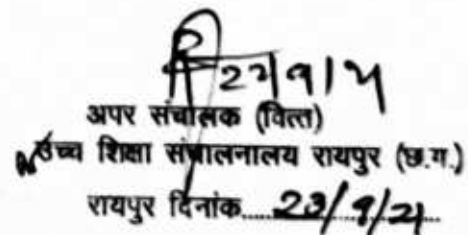 22/9/21
अपर संचालक (वित्त)
उच्च शिक्षा संचालनालय रायपुर (छ.ग.)
रायपुर दिनांक....23/9/21